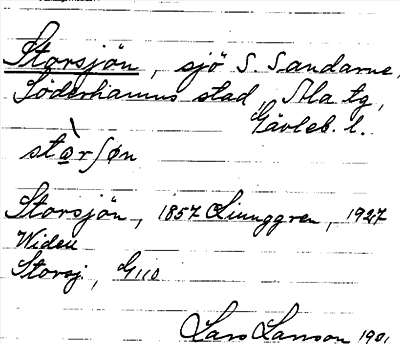 Storsjön, sjö S. Sandarne,
Söderhamns stad, Ala tg,
Gävleb. l.
stòrʃøn
Storsjön, 1857 Ljunggren, 1927
Widell
Storsj., G110
Lars Larsson 1901